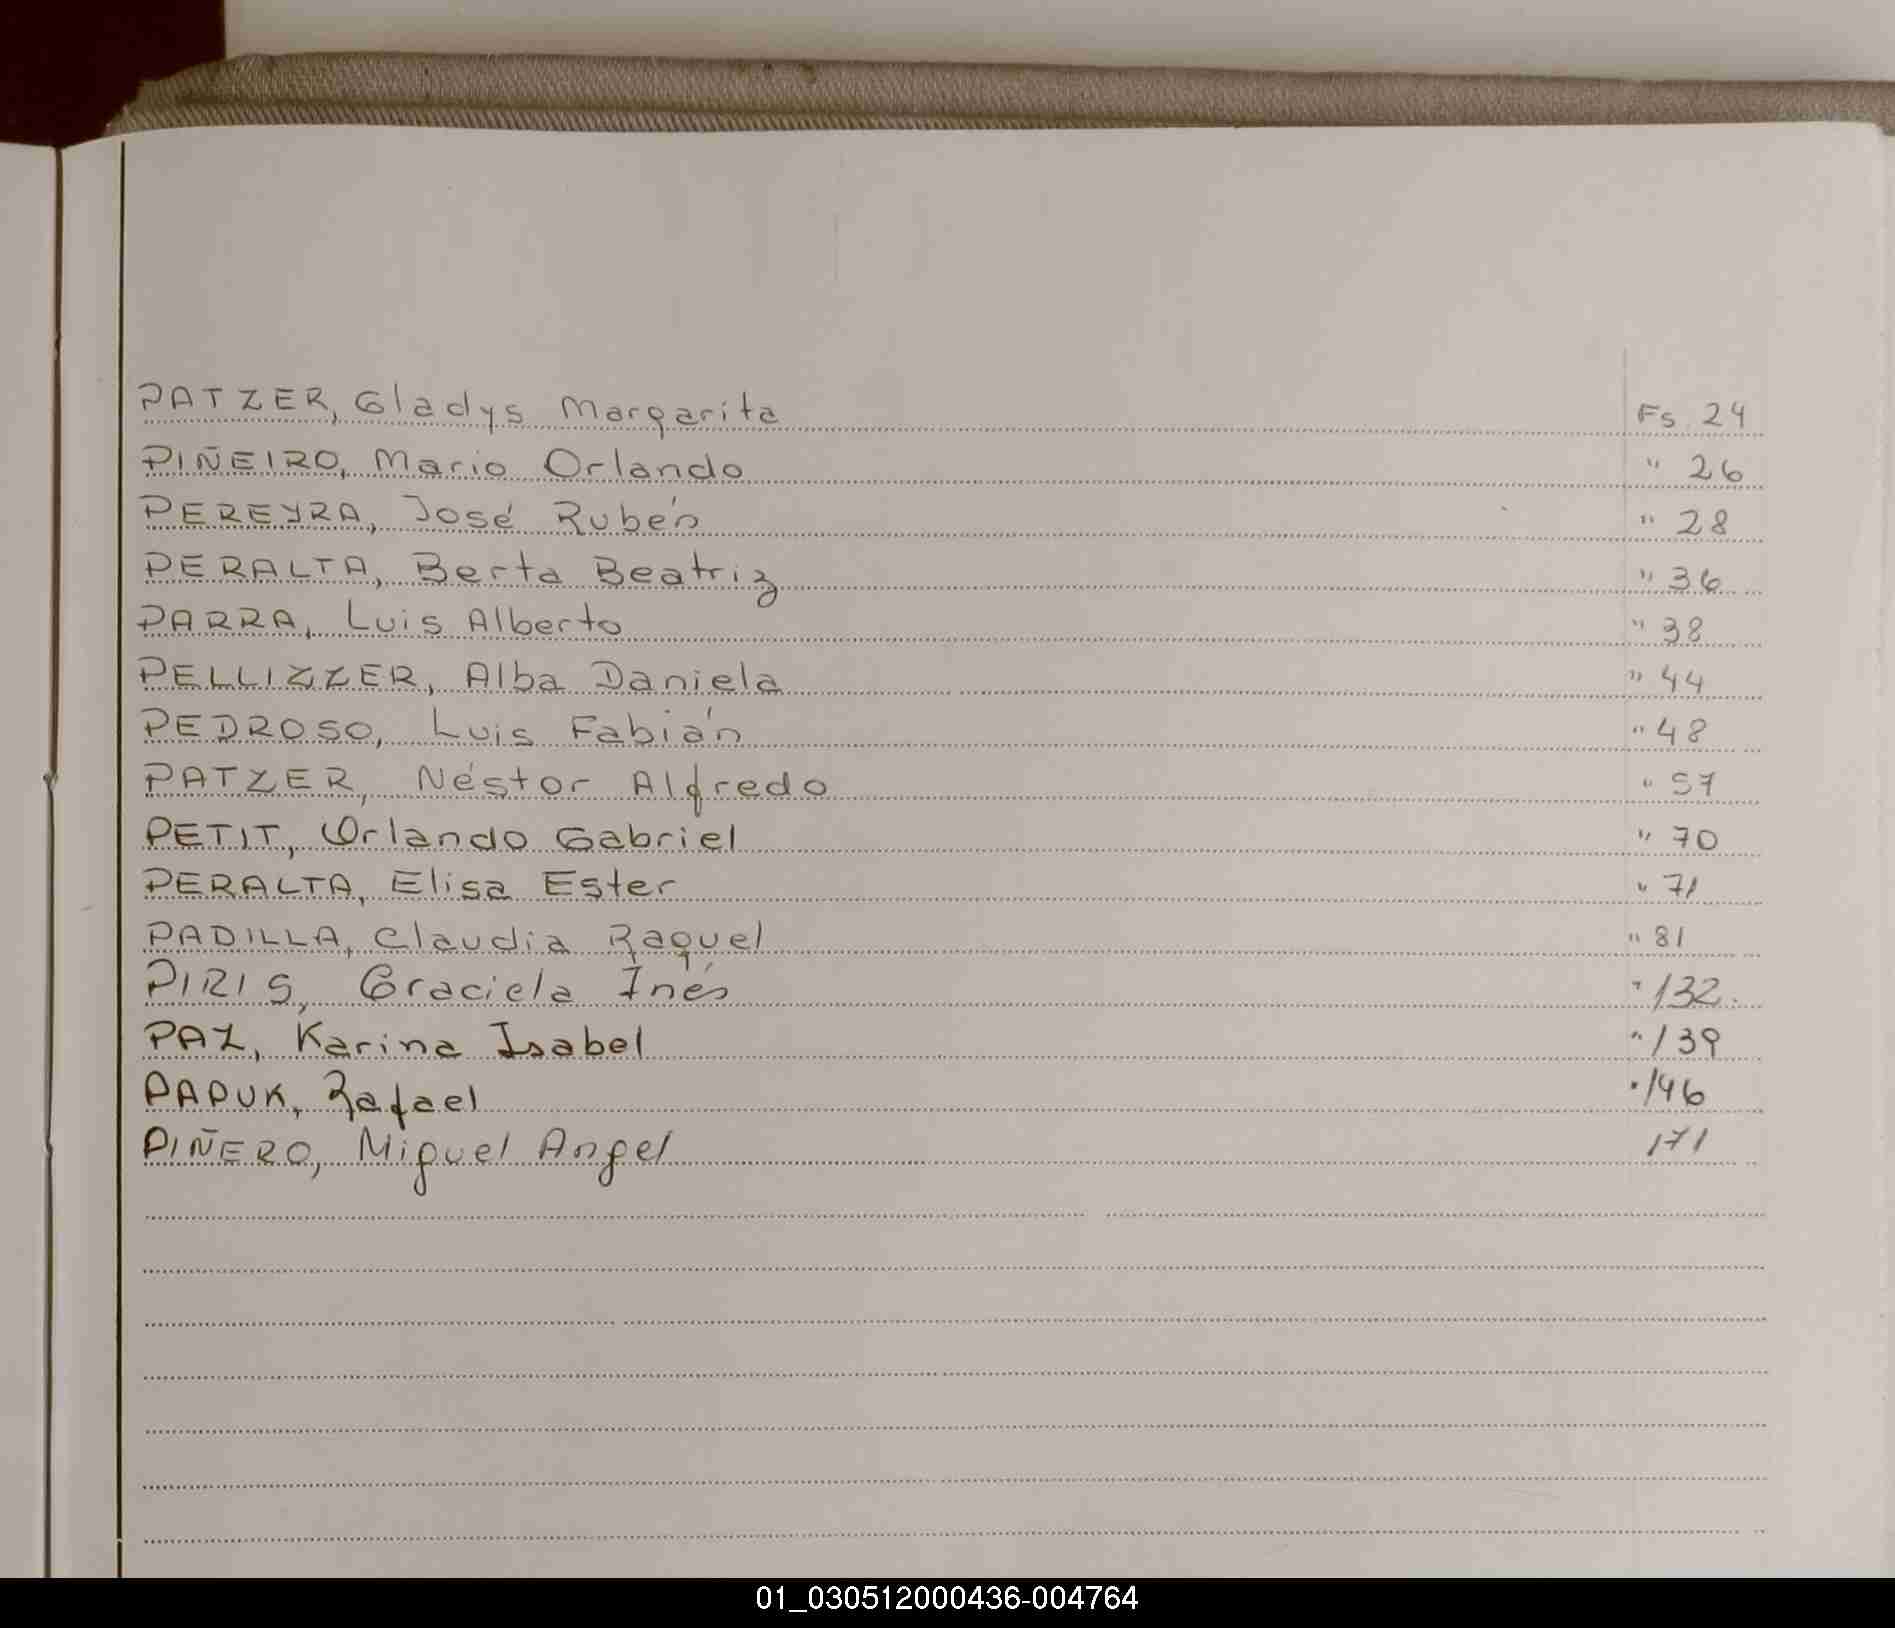 PATZER, Gladys Margarita Fs. 24
PIÑEIRO, Mario Orlando " 26
PEREYRA, José Rubén " 28
PERALTA, Berta Beatriz " 36
PARRA, Luis Alberto " 38
PELLIZZER, Alba Daniela " 44
PEDROSO, Luis Fabián " 48
PATZER, Néstor Alfredo " 57
PETIT, Orlando Gabriel " 70
PERALTA, Elisa Ester " 71
PADILLA, Claudia Raquel " 81
PIRIS, Graciela Inés " 132
PAZ, Karina Isabel " 139
PAPUK, Rafael " 146
PIÑERO, Miguel Angel 171
01_030512000436-004764